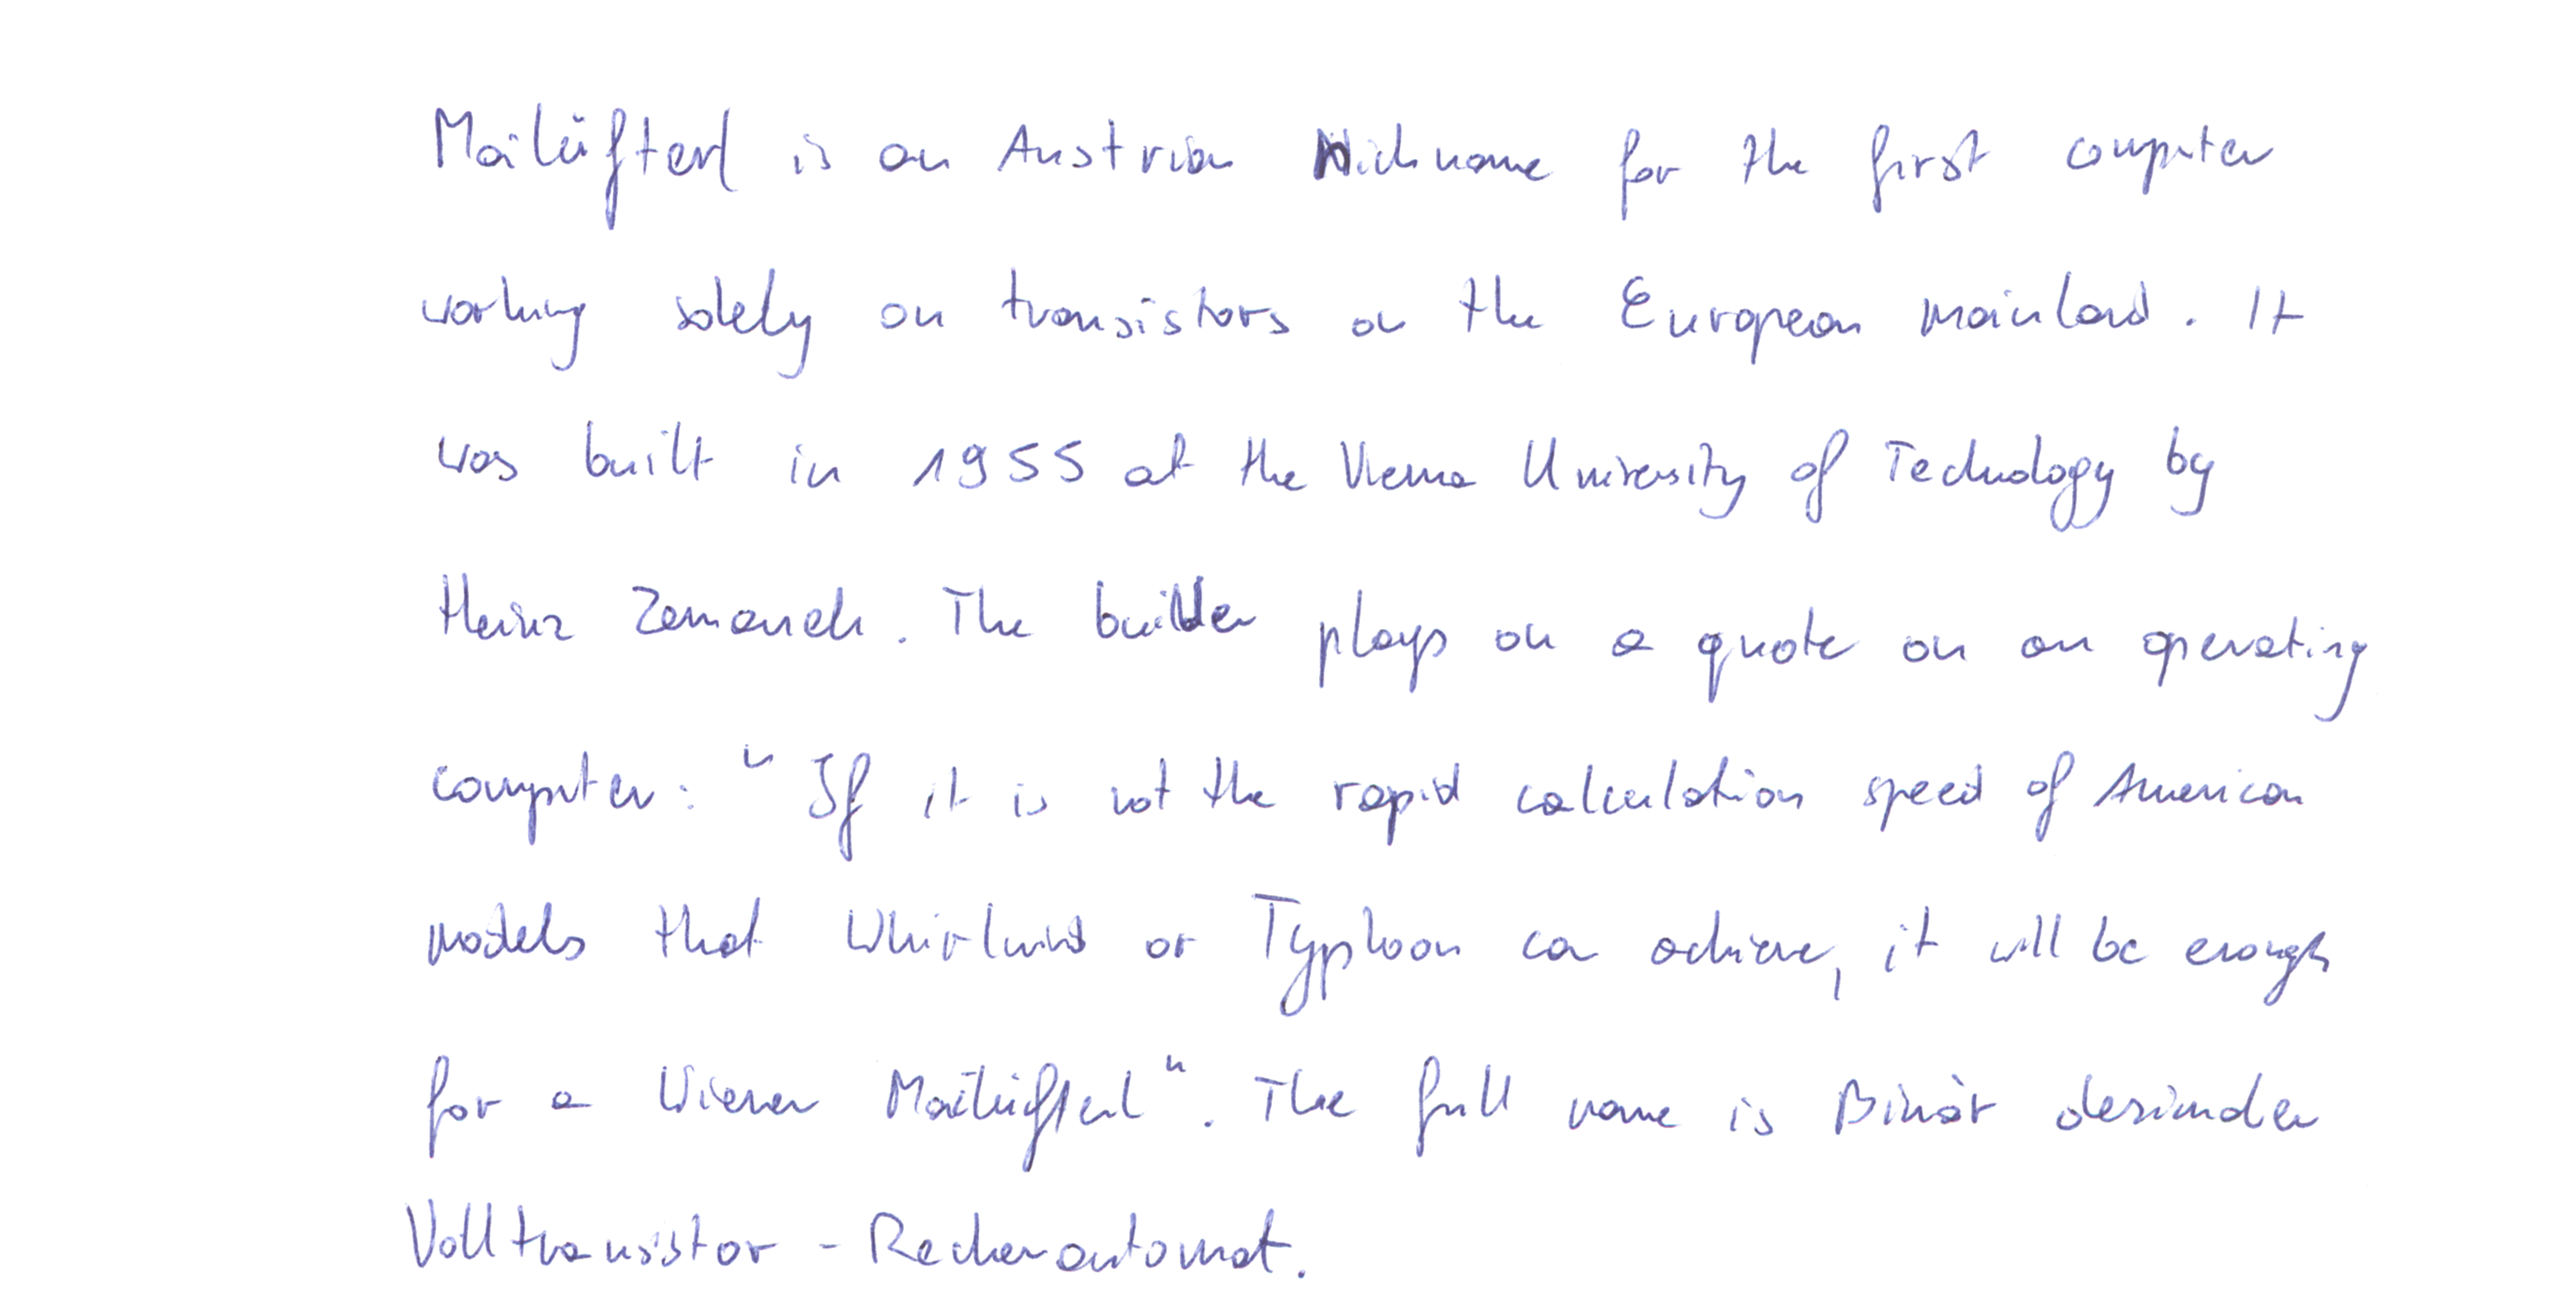 Mailüfterl is an Austrian Nickname for the first computer
working solely on transistors on the European mainland. It
was built in 1955 at the Vienna University of Technology by
Heinz Zemanek. The builder plays on a quote on an operating
computer: "If it is not the rapid calculation speed of American
models that Whirlwind or Typhoon can achieve, it will be enough
for a Wiener Mailüfterl". The full name is Binär dezimaler
Volltransistor - Rechenautomat.